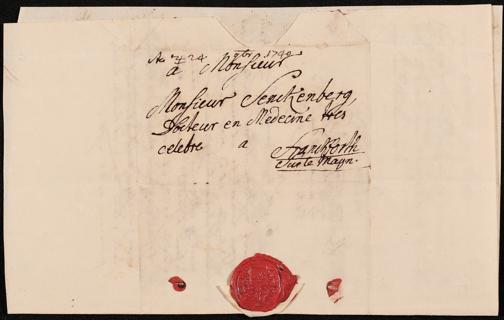 24 9br 1742
a Monsieur
Monsieur Senckenberg,
Docteur en Medecine tres
celebre a
Franckforth
Sur le Mayn.